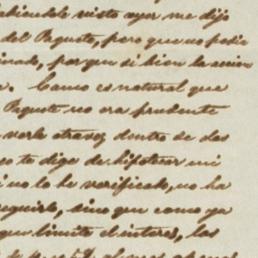 habiendole visto ayer me dijo
del Paquete, pero que no podia
inado, porque si bien la
. Como es natural que
Paquete no era prudente
verlo atraves dentro de dos
te digo de hipotecar mi
i no lo he verificado, no ha
eguirlo, sino que como ya
que limite el interes, las